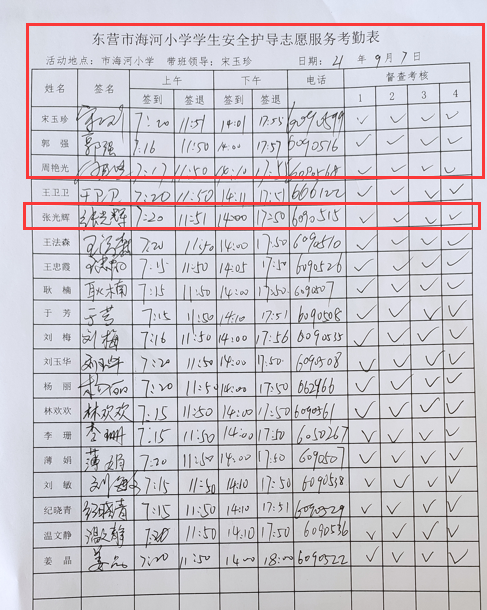 东营市海河小学学生安全护导志愿服务考勤表
活动地点：市海河小学 带班领导：宋玉珍 日期：21 年 9 月 7 日
姓名 签名 上午 下午 电话 督查考核
签到 签退 签到 签退 1 2 3 4
宋玉珍 7:20 11:51 14:01 17:55 6090599 ✓ ✓ ✓ ✓
郭强 郭强 7:16 11:50 14:00 17:57 6090516 ✓ ✓ ✓ ✓
周艳光 7:17 11:50 14:10 17:55 6090568 ✓ ✓ ✓ ✓
王卫卫 王卫卫 7:20 11:50 14:11 17:51 666122 ✓ ✓ ✓ ✓
张光辉 张光辉 7:20 11:51 14:00 17:50 6090515 ✓ ✓ ✓ ✓
王法森 王法森 7:20 11:50 14:00 17:50 6090510 ✓ ✓ ✓ ✓
王忠霞 7:15 11:50 14:05 17:50 6090526 ✓ ✓ ✓ ✓
耿楠 耿楠 7:15 11:50 14:00 17:50 6090507 ✓ ✓ ✓ ✓
于芳 于芳 7:15 11:50 14:10 17:51 6090508 ✓ ✓ ✓ ✓
刘梅 刘梅 7:16 11:50 14:00 17:56 6090535 ✓ ✓ ✓ ✓
刘玉华 刘玉华 7:20 11:50 14:00 17:50 6090508 ✓ ✓ ✓ ✓
杨丽 7:20 11:50 14:00 17:50 662966 ✓ ✓ ✓ ✓
林欢欢 林欢欢 7:15 11:50 14:00 17:50 6090561 ✓ ✓ ✓ ✓
李珊 李珊 7:15 11:50 14:00 17:50 6050267 ✓ ✓ ✓ ✓
薄娟 薄娟 7:20 11:50 14:00 17:50 6090507 ✓ ✓ ✓ ✓
刘敏 刘敏 7:15 11:50 14:10 17:50 6090508 ✓ ✓ ✓ ✓
纪晓青 纪晓青 7:15 11:50 14:10 17:51 6090529 ✓ ✓ ✓ ✓
温文静 温文静 7:20 11:50 14:10 17:50 6090536 ✓ ✓ ✓ ✓
姜晶 姜晶 7:20 11:50 14:00 18:00 6090522 ✓ ✓ ✓ ✓